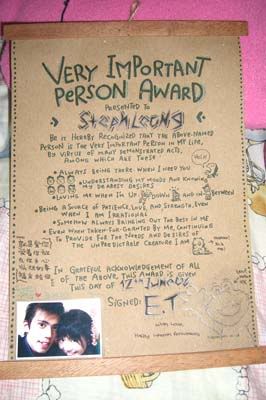 VERY IMPORTANT
PERSON AWARD
PRESENTED TO
STEPH LEONG
BE IT HEREBY RECOGNIZED THAT THE ABOVE-NAMED
PERSON IS THE VERY IMPORTANT PERSON IN MY LIFE,
BY VIRTUE OF MANY DEMONSTRATED ACTS,
AMONG WHICH ARE THESE
• ALWAYS BEING THERE WHEN I NEED YOU
• UNDERSTANDING MY MOODS AND KNOWING
MY DEAREST DESIRES
• LOVING ME WHEN I'M UP, DOWN AND IN BETWEEN
• BEING A SOURCE OF PATIENCE, LOVE, AND STRENGTH, EVEN
WHEN I AM IRRATIONAL
• SOMEHOW ALWAYS BRINGING OUT THE BEST IN ME
• EVEN WHEN TAKEN FOR GRANTED BY ME, CONTINUING
TO PROVIDE FOR THE NEEDS AND DESIRES OF
THE UNPREDICTABLE CREATURE I AM
IN GRATEFUL ACKNOWLEDGEMENT OF ALL
OF THE ABOVE THIS AWARD IS GIVEN
THIS DAY OF 12TH JUNE
SIGNED: E.T
With Love,
Happy Anniversary